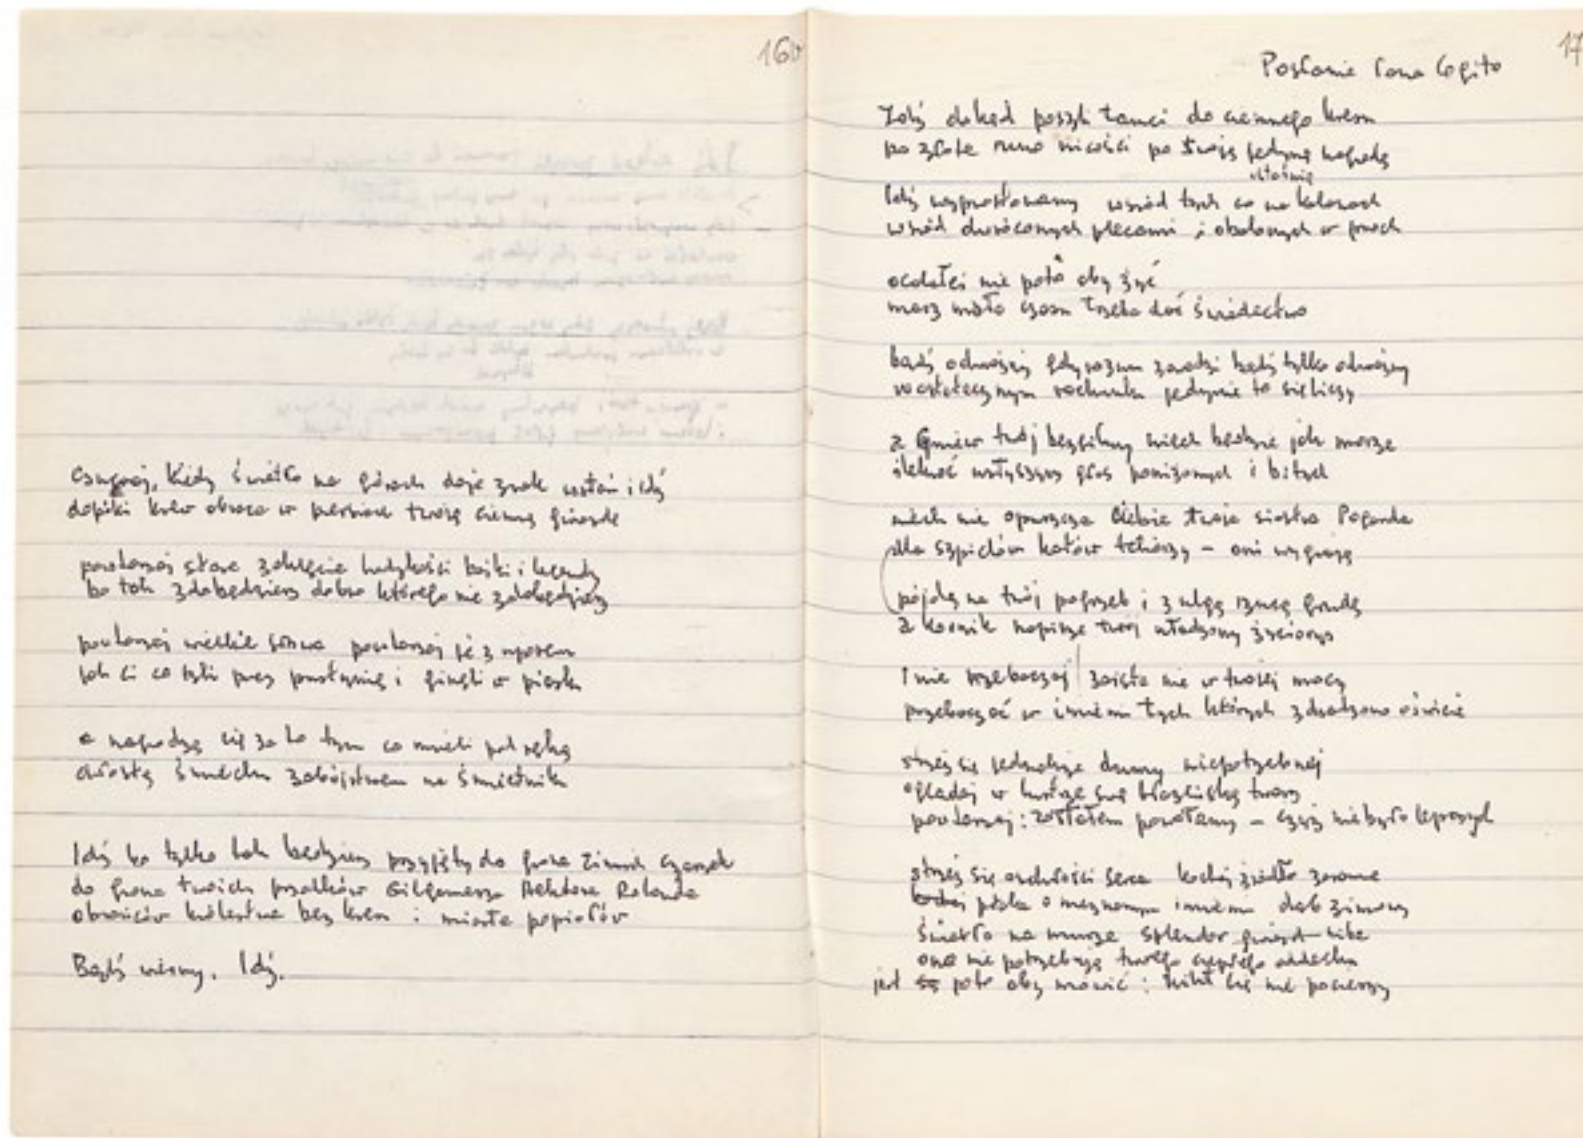 16v
czuwaj, kiedy światło na górach daje znak wstań i idź
dopóki krew obraca w piersiach twoją ciemną gwiazdę
powtarzaj stare zaklęcia ludzkości bajki i legendy
bo tak zdobędziesz dobro którego nie zdobędziesz
powtarzaj wielkie słowa powtarzaj je z uporem
jak ci co szli przez pustynię i ginęli w piasku
a nagrodzą cię za to tym co mieli pod ręką
chłostą śmiechu zabójstwem na śmietniku
Idź bo tylko tak będziesz przyjęty do grona zimnych czaszek
do grona twoich przodków Gilgamesza Hektora Rolanda
obrońców królestwa bez kresu i miasta popiołów
Bądź wierny. Idź.
17
Posłanie Pana Cogito
Idź dokąd poszli tamci do ciemnego kresu
po złote runo nicości po twoją jedyną nagrodę
ostatnią
Idź wyprostowany wśród tych co na kolanach
wśród odwróconych plecami i obalonych w proch
ocalałeś nie poto aby żyć
masz mało czasu trzeba dać świadectwo
bądź odważny gdy rozum zawodzi bądź tylko odważny
w ostatecznym rachunku jedynie to się liczy
a Gniew twój bezsilny niech będzie jak morze
ilekroć usłyszysz głos poniżonych i bitych
niech nie opuszcza Ciebie twoja siostra Pogarda
dla szpiclów katów tchórzy – oni wygrają
pójdą na twój pogrzeb i z ulgą rzucą grudę
a kornik napisze twój uładzony życiorys
I nie wybaczaj zaiste nie w twojej mocy
przebaczać w imieniu tych których zdradzono o świcie
strzeż się jednakże dumy niepotrzebnej
oglądaj w lustrze swą błazeńską twarz
powtarzaj: zostałem powołany – czyż nie było lepszych
strzeż się oschłości serca kochaj źródło zaranne
kochaj ptaka o nieznanym imieniu dąb zimowy
światło na murze splendor nieba
one nie potrzebują twego ciepłego oddechu
jest są poto aby mówić: nikt cię nie pocieszy